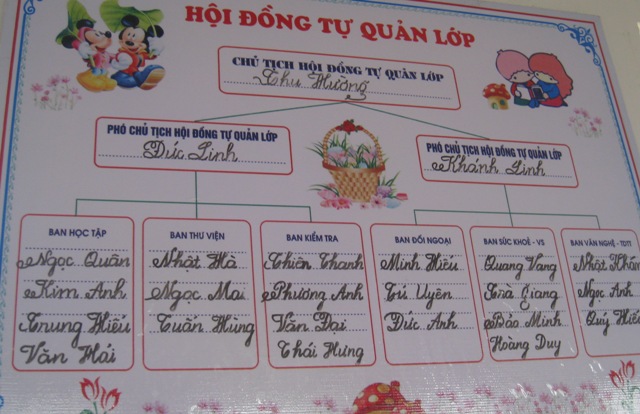 HỘI ĐỒNG TỰ QUẢN LỚP
CHỦ TỊCH HỘI ĐỒNG TỰ QUẢN LỚP
Thu Hường
PHÓ CHỦ TỊCH HỘI ĐỒNG TỰ QUẢN LỚP
Đức Linh
PHÓ CHỦ TỊCH HỘI ĐỒNG TỰ QUẢN LỚP
Khánh Linh
BAN HỌC TẬP
Ngọc Quân
Kim Anh
Trung Hiếu
Văn Hải
BAN THƯ VIỆN
Nhật Hà
Ngọc Mai
Tuấn Hùng
BAN KIỂM TRA
Thiên Thanh
Phương Anh
Văn Đại
Thái Hưng
BAN ĐỐI NGOẠI
Minh Hiếu
Tú Uyên
Đức Anh
BAN SỨC KHOẺ - VS
Quang Vang
Trà Giang
Bảo Minh
Hoàng Duy
BAN VĂN NGHỆ - TDTT
Nhật
Ngọc Anh
Quý Hiếu